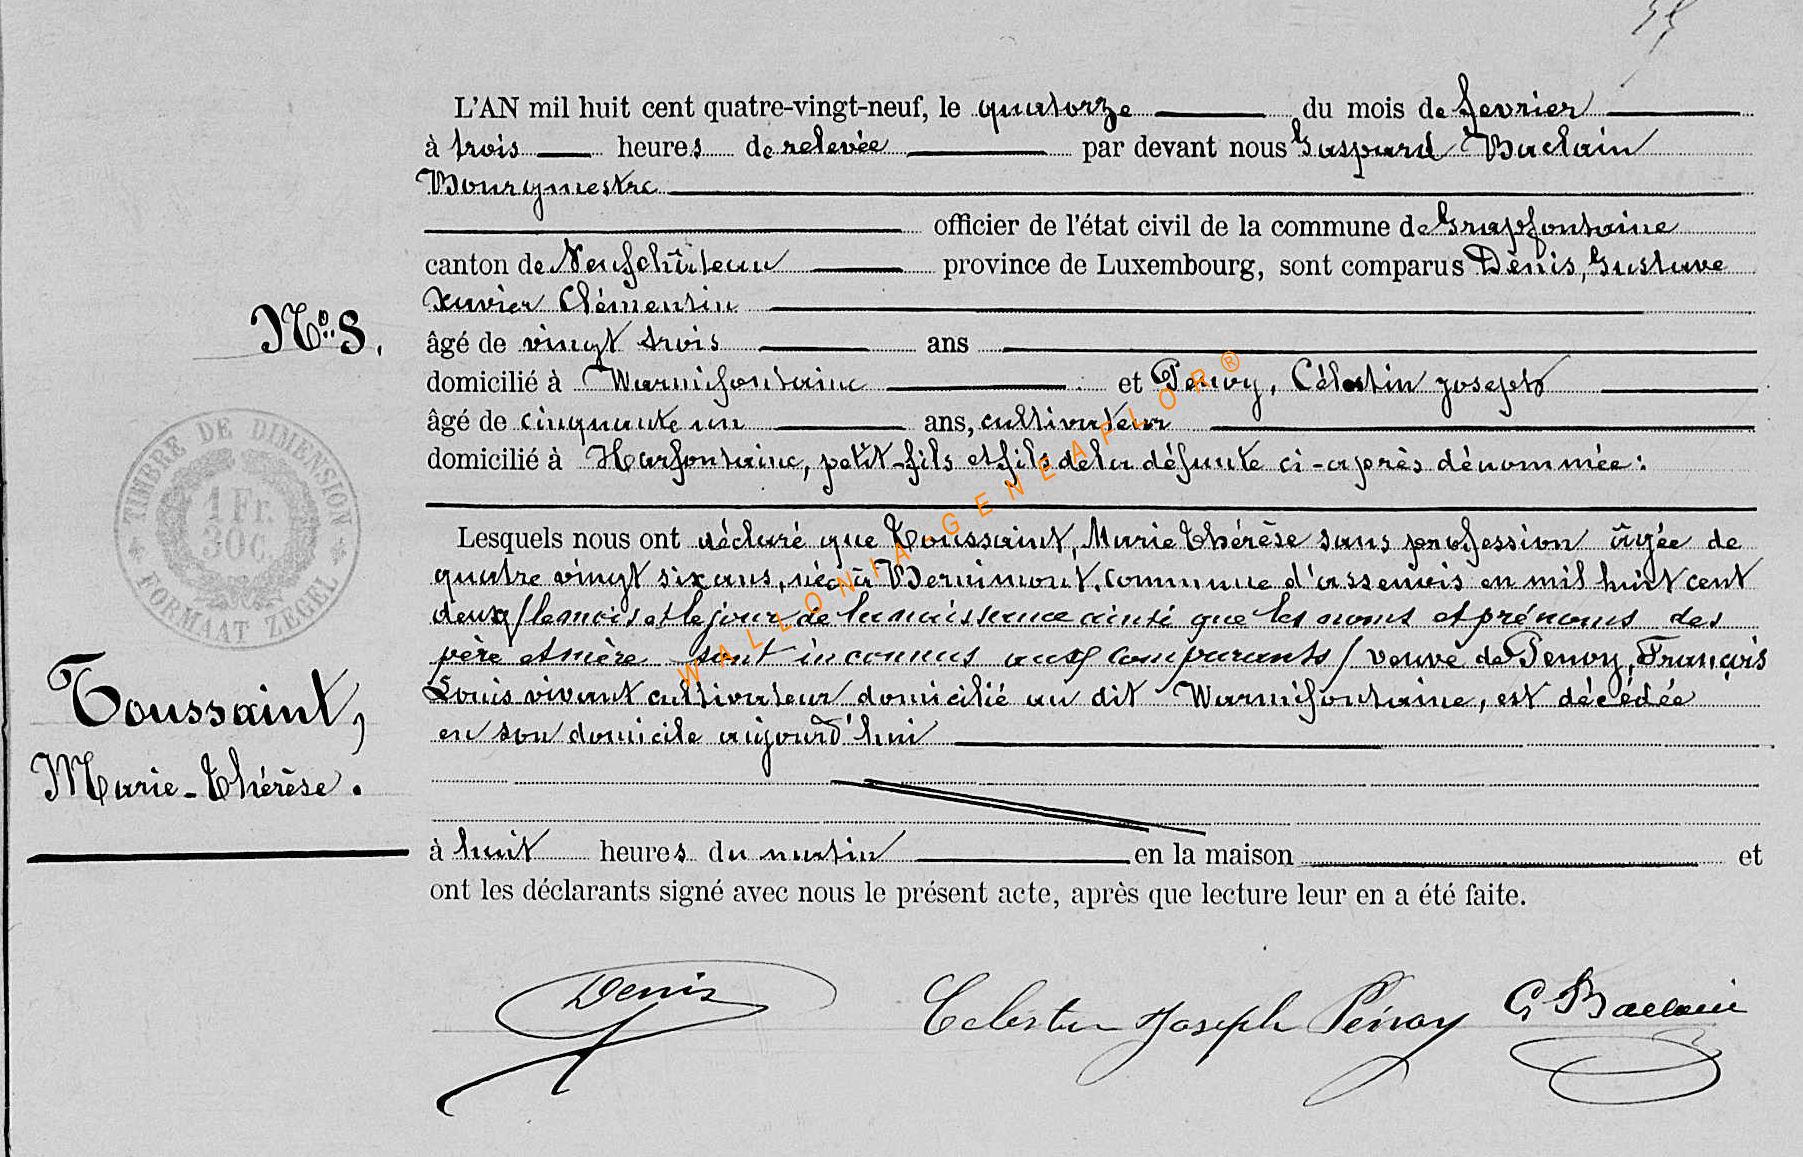 L'AN mil huit cent quatre-vingt-neuf, le quatorze du mois de fevrier
à trois heures de relevée par devant nous Gaspard Baclain
Bourgmestre
officier de l'état civil de la commune de Grapfontaine
canton de Neufchâteau province de Luxembourg, sont comparus Dènis, Gustave
Xavier Clémentin
No. 8.
âgé de vingt trois ans
domicilié à Warmifontaine et Penoy, Célestin joseph
âgé de cinquante un ans, cultivateur
domicilié à Harfontaine, petit-fils et fils de la défunte ci-après dénommée:
TIMBRE DE DIMENSION
1 Fr.
30 c.
FORMAAT ZEGEL
Lesquels nous ont déclaré que Toussaint, Marie Thérèse sans profession âgée de
quatre vingt six ans, née à Bernimont, commune d'assenois en mil huit cent
deux / le mois et le jour de la naissance ainsi que les noms et prénoms des
père et mère sont inconnus aux comparants / veuve de Penoy, François
Louis vivant cultivateur domicilié au dit Warmifontaine, est décédée
en son domicile aujourd'hui
Toussaint,
Marie-Thérèse.
à huit heures du matin en la maison et
ont les déclarants signé avec nous le présent acte, après que lecture leur en a été faite.
Denis Celestin Joseph Penoy G Baclain
WALLONIA-GENEAFLOR®